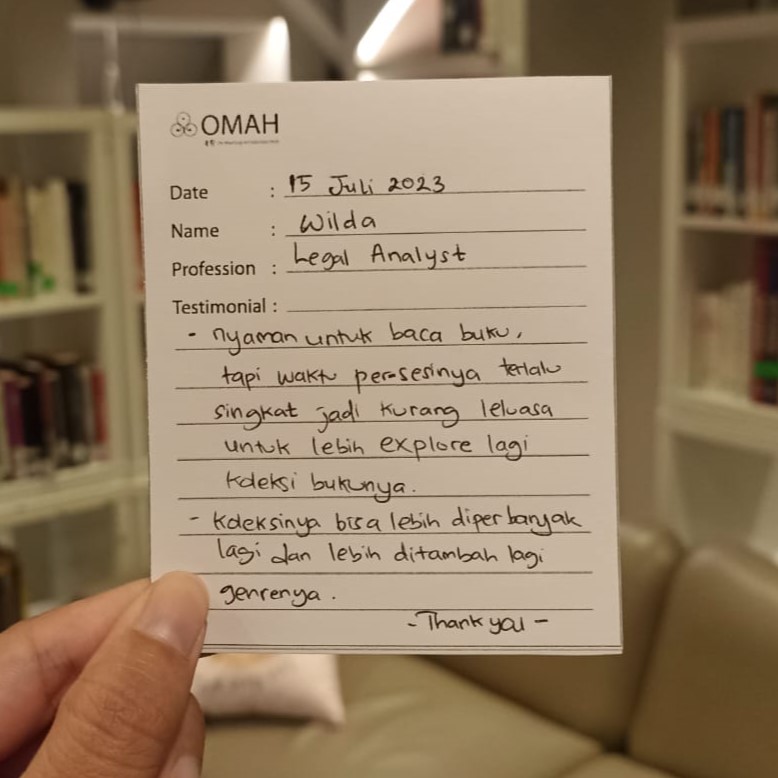 OMAH
Date : 15 Juli 2023
Name : Wilda
Profession : Legal Analyst
Testimonial :
- Nyaman untuk baca buku,
tapi waktu per-sesinya terlalu
singkat jadi kurang leluasa
untuk lebih explore lagi
koleksi bukunya.
- Koleksinya bisa lebih diperbanyak
lagi dan lebih ditambah lagi
genrenya.
- Thank you -